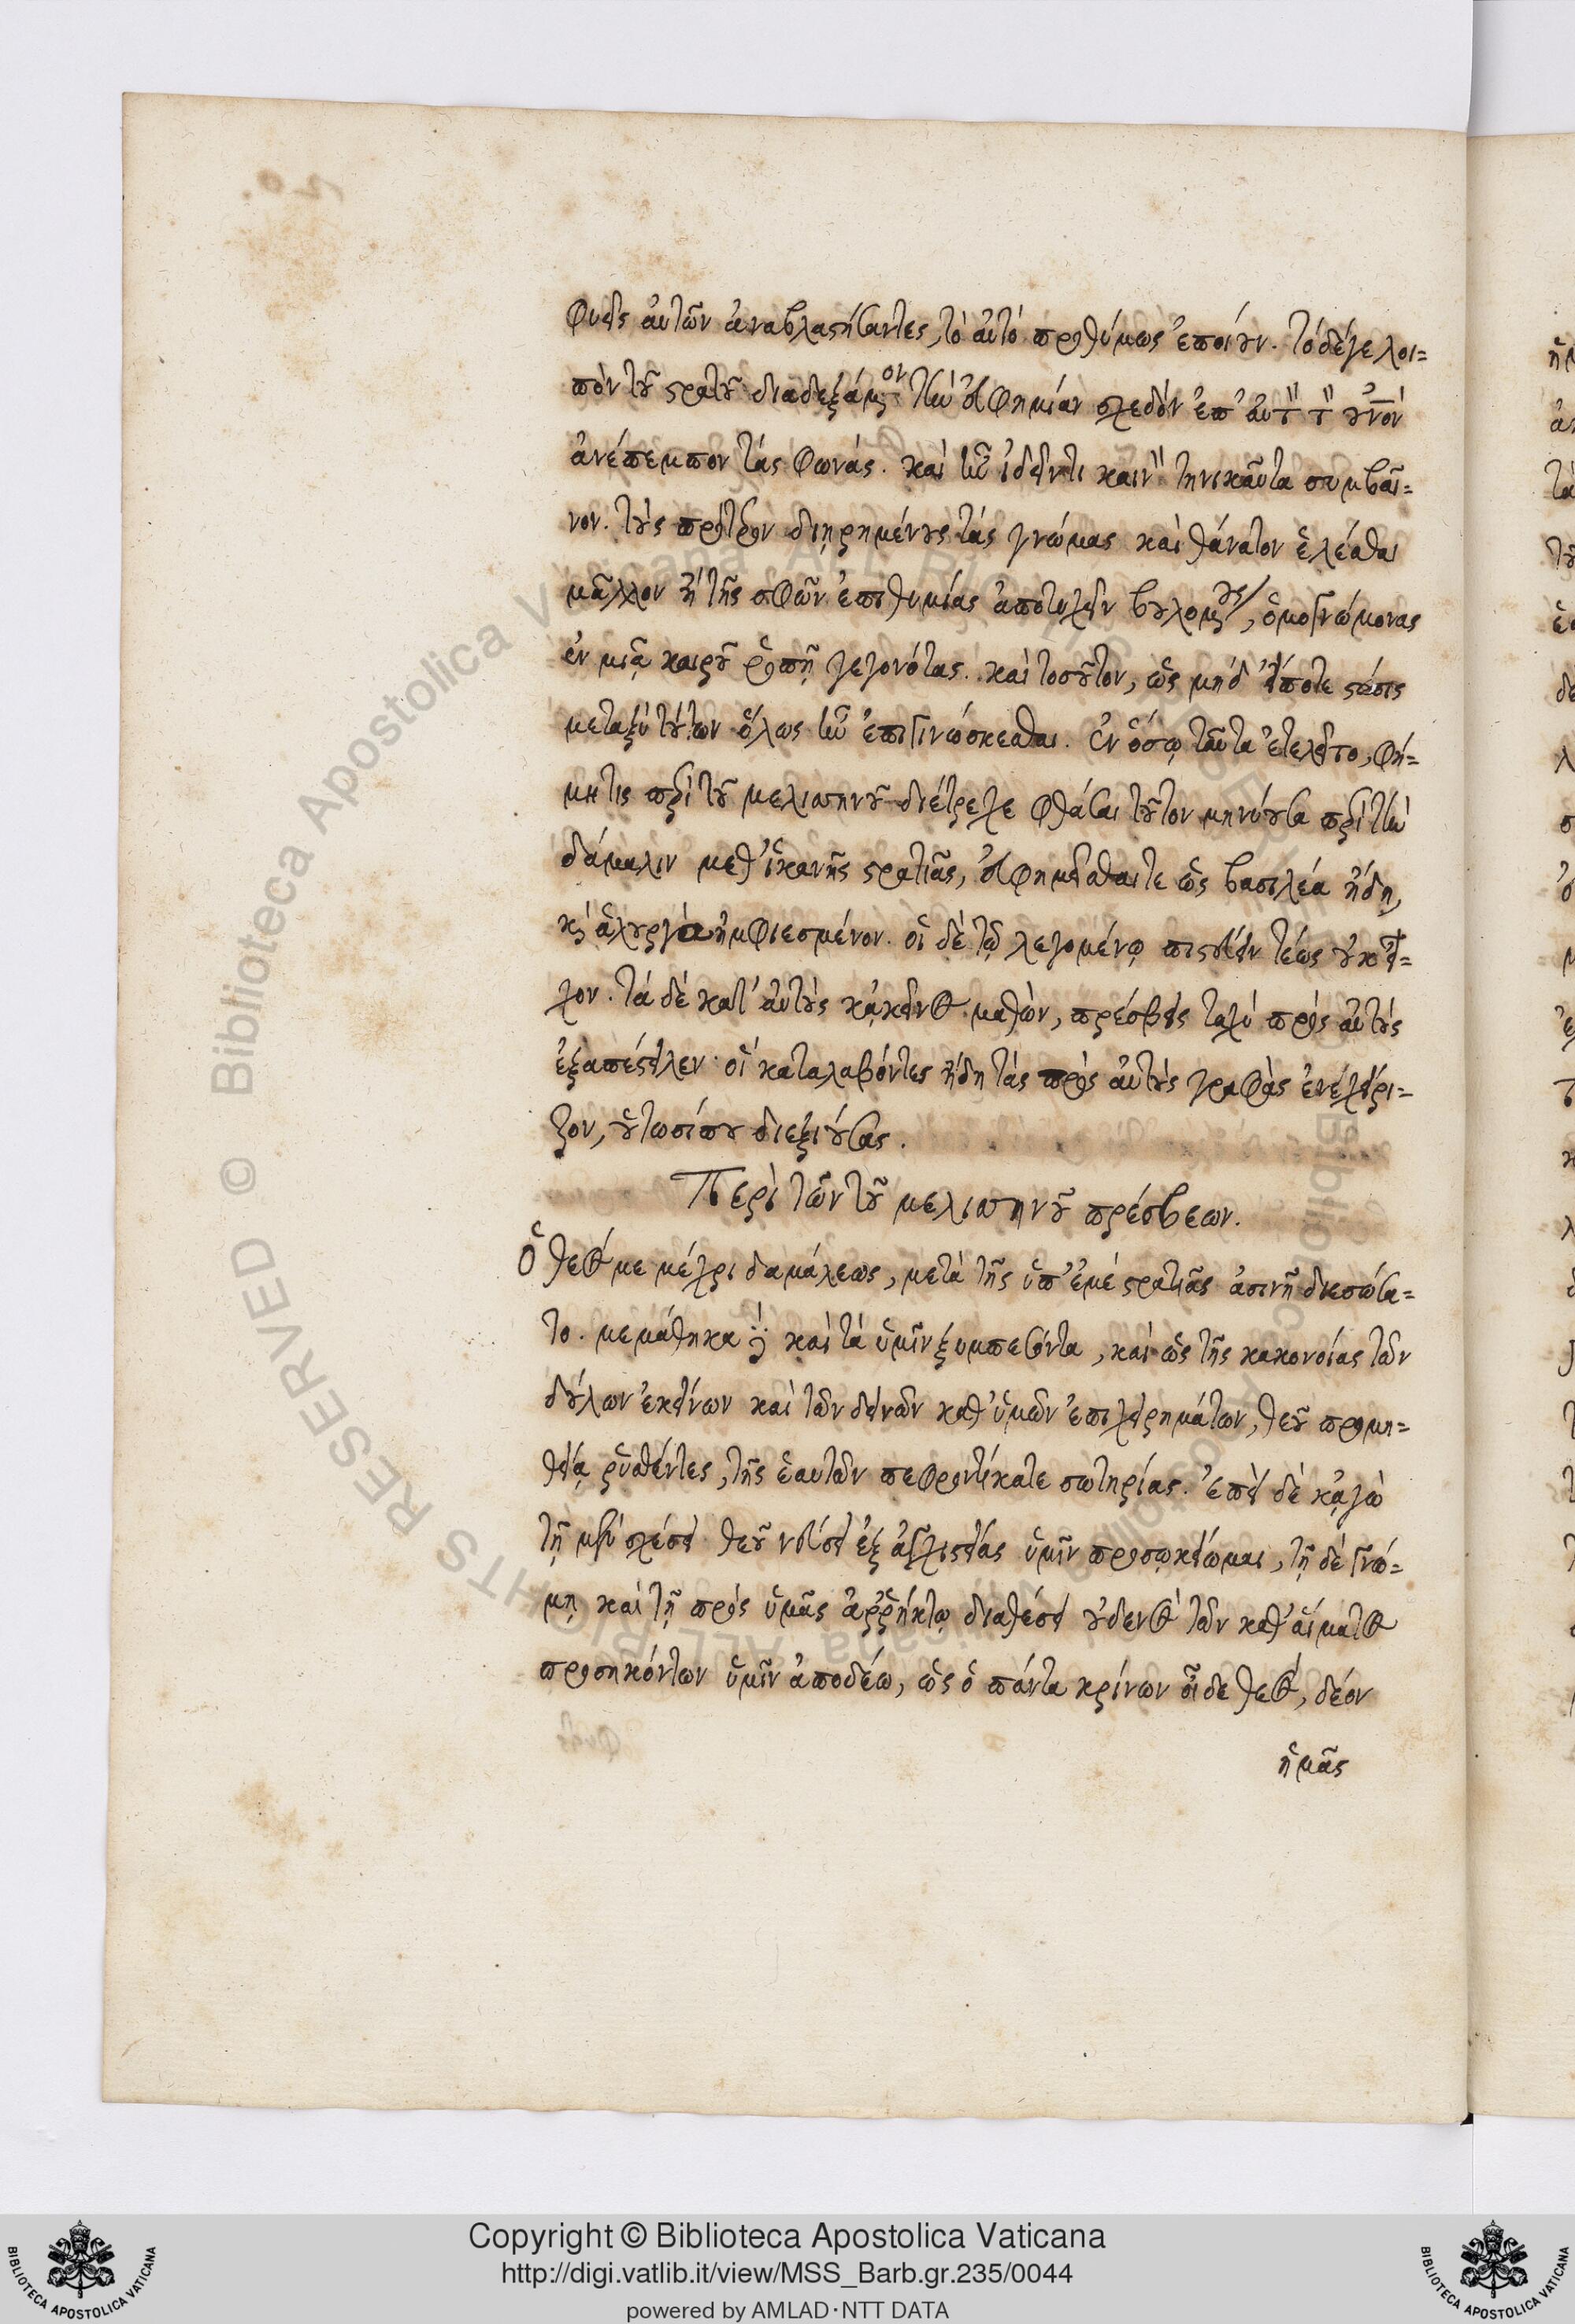 φυεῖς αὐτῶν ἀναβλαστήσαντες, τὸ αὐτὸ προθύμως ἐποίουν. τὸ δέ γε λοι=
πὸν τοῦ στρατοῦ διαδεξάμενον τὴν εὐφημίαν σχεδὸν ἐπ' αὐτὸν τὸν οὐνον
ἀνέπεμπον τὰς φωνάς. καὶ ἦν ἰδεῖν τι καινὸν τηνικαῦτα συμβαῖ=
νον. τοὺς πρότερον διηρημένους τὰς γνώμας καὶ θάνατον ἑλέσθαι
μᾶλλον ἢ τῆς σφῶν ἐπιθυμίας ἀποτυχεῖν βουλομένους, ὁμογνώμονας
ἐν μιᾷ καιροῦ ῥοπῇ γεγονότας. καὶ τοσοῦτον, ὡς μηδ' εἴποτε στάσις
μεταξὺ τούτων ὅλως ἦν ἐπιγινώσκεσθαι. ἐν ὅσῳ ταῦτα ἐτελεῖτο, φή=
μη τις περὶ τοῦ μελισσηνοῦ διέτρεχε φθάσαι τοῦτον μηνύουσα περὶ τὴν
δάμαλιν μεθ' ἱκανῆς στρατιᾶς, εὐφημεῖσθαι τε ὡς βασιλέα ἤδη,
κὶ ἁλουργίδα ἠμφιεσμένον. οἱ δὲ τῷ λεγομένῳ πιστεύειν τέως οὐκ εἶ=
χον. τὰ δὲ κατ' αὐτοὺς κἀκεῖνος μαθὼν, πρέσβεις ταχὺ πρὸς αὐτοὺς
ἐξαπέστειλεν· οἳ καταλαβόντες ἤδη τὰς πρὸς αὐτοὺς γραφὰς ἐνεχείρι=
ζον, οὑτωσί που διεξιούσας.
Περὶ τῶν τοῦ μελισσηνοῦ πρέσβεων.
Ὁ θεός με μέχρι δαμάλεως, μετὰ τῆς ὑπ' ἐμὲ στρατιᾶς ἀσινῆ διεσώσα=
το. μεμάθηκα δὲ καὶ τὰ ὑμῖν ξυμπεσόντα, καὶ ὡς τῆς κακονοίας τῶν
δούλων ἐκείνων καὶ τῶν δεινῶν καθ' ὑμῶν ἐπιχειρημάτων, θεοῦ προμη=
θείᾳ ῥυσθέντες, τῆς ἑαυτῶν πεφροντίκατε σωτηρίας. ἐπεὶ δὲ κἀγὼ
τῇ μὲν σχέσει θεοῦ νεύσει ἐξ ἀγχιστείας ὑμῖν προσῳκείωμαι, τῇ δὲ γνώ=
μῃ καὶ τῇ πρὸς ὑμᾶς ἀῤῥήκτῳ διαθέσει οὐδενὸς τῶν καθ' αἵματος
προσηκόντων ὑμῖν ἀποδέω, ὡς ὁ πάντα κρίνων οἶδε θεός, δέον
ἡμᾶς
Copyright © Biblioteca Apostolica Vaticana
http://digi.vatlib.it/view/MSS_Barb.gr.235/0044
powered by AMLAD·NTT DATA